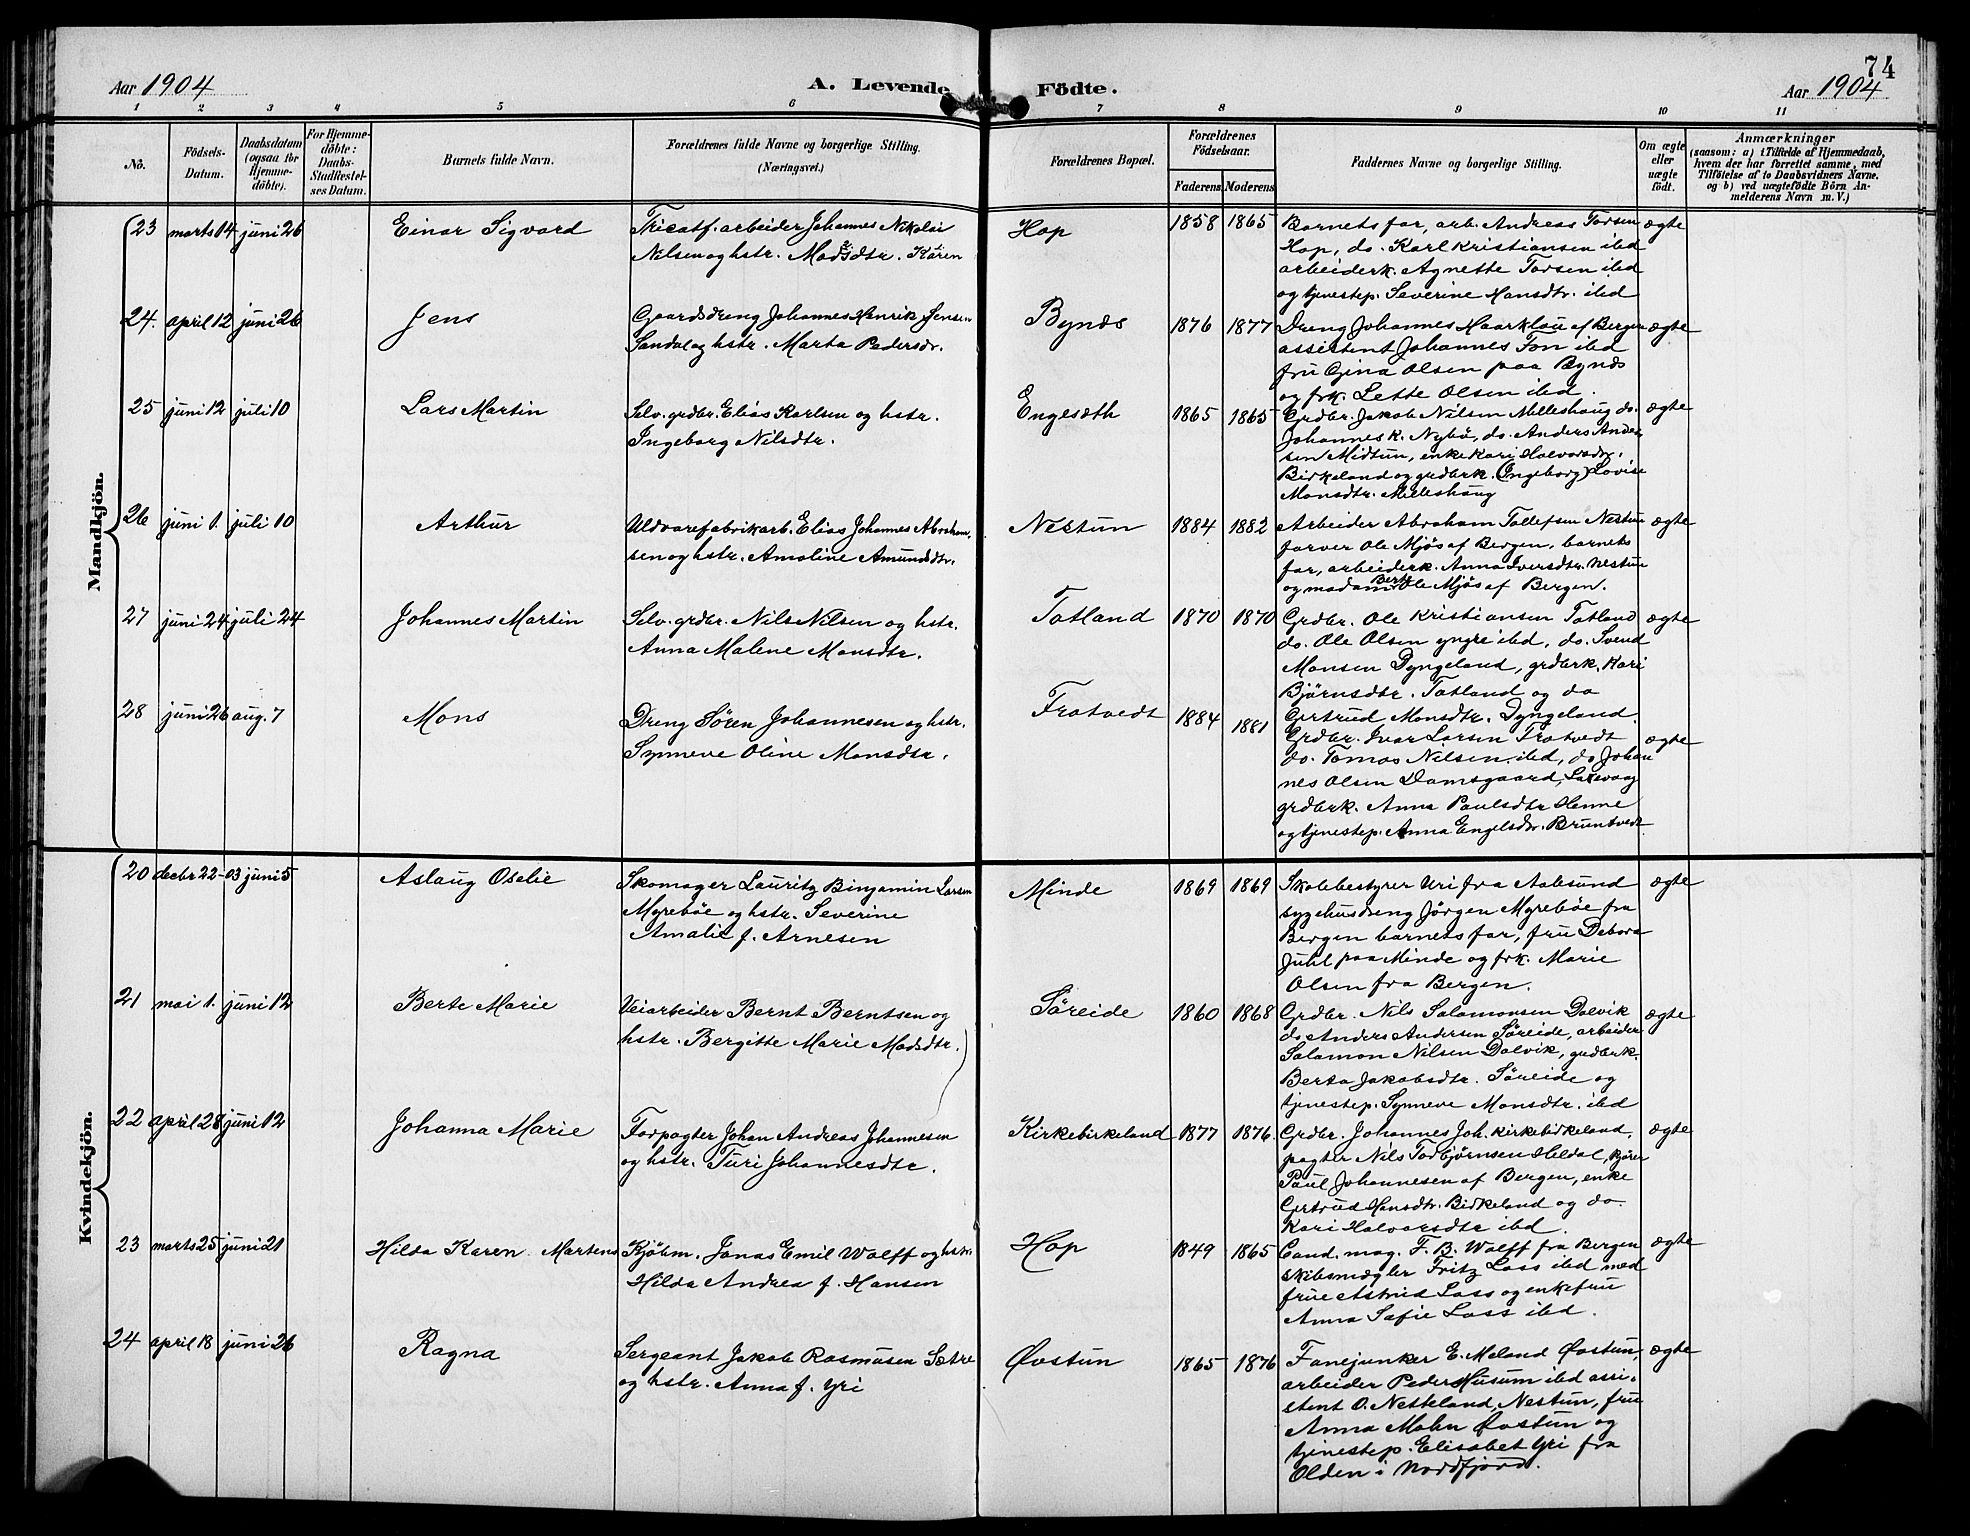 74
Aar 1904
A. Levende Födte.
Aar 1904
1 2 3 4 5 6 7 8 9 10 11
No.
Födsels-
Datum.
Daabsdatum
(ogsaa for
Hjemme-
döbte).
For Hjemme-
döbte:
Daabs-
Stadfæstel-
ses Datum.
Barnets fulde Navn.
Forældrenes fulde Navne og borgerlige Stilling.
(Næringsvei.)
Forældrenes Bopæl.
Forældrenes
Födselsaar.
Faderens Moderens
Faddernes Navne og borgerlige Stilling.
Om ægte
eller
uægte
født.
Anmærkninger
(saasom: a) i Tilfælde af Hjemmedaab,
hvem der har forrettet samme, med
Tilföielse af to Daabsvidners Navne,
og b) ved uægtefödte Börn An-
melderens Navn m. V.)
Mandkjön.
23 marts 14 juni 26 Einar Sigvard
Tricotf.arbeider Johannes Nikolai
Nilsen og hstr. Madsdtr. Karen
Hop 1858 1865
Barnets far, arb. Andreas Torsen
Hop, do. Karl Kristiansen ibd
arbeiderk. Agnette Torsen ibd
og tjenestep. Severine Hansdtr. ibd
ægte
24. april 12 juni 26 Jens
Gaardsdreng Johannes Henrik Jensen
Sandal og hstr. Marta Pedersdr.
Bynds 1876 1877
Dreng Johannes Haarklau af Bergen
assistent Johannes Fon ibd
fru Gina Olsen paa Bynds
og frk. Lette Olsen ibd.
ægte
25 juni 12 juli 10 Lars Martin
Selv. grdbr. Elias Karlsen og hstr.
Ingeborg Nilsdtr.
Engesæth 1865 1865
Grdbr. Jakob Nilsen Milleshaug do.
Johannes K. Nybö, do. Anders Ander
sen Midtun, enke Kari Halvorsdtr.
Birkeland og grdbrk. (Ingeborg) Lovise
Monsdtr. Milleshaug
ægte
26 juni 1. juli 10 Arthur
Uldvarefabrikarb. Elias Johannes Abraham
sen og hstr. Amaline Amundsdtr.
Nestun 1884 1882
Arbeider Abraham Tollefsen Nestun
farver Ole Mjös af Bergen, barnets
far, arbeiderk. Anna Iversdtr. Nestun
og madam Berte Ole Mjös af Bergen.
ægte
27 juni 24 juli 24 Johannes Martin
Selv. grdbr. Nils Nilsen og hstr.
Anna Malene Monsdtr.
Totland 1870 1870
Grdbr. Ole Kristiansen Totland
do. Ole Olsen yngre ibd, do. Svend
Monsen Dyngeland, grdbrk. Kari
Björnsdtr. Totland og do
Gertrud Monsdtr. Dyngeland.
ægte
28 juni 26 aug. 7 Mons
Dreng Sören Johannesen og hstr.
Synneve Oline Monsdtr.
Trotvedt 1884 1881
Grdbr. Ivar Larsen Trotvedt
do. Tomas Nilsen ibd, do Johan
nes Olsen Damsgaard, Laxevaag
grdbrk. Anna Paulsdtr Henne
og tjenestep. Anna Engelsdtr. Bruntvedt
ægte
Kvindekjön.
20 decbr 22-03 juni 5 Aslaug Oselie
Skomager Lauritz Binjamin Larsen
Myreböe og hstr. Severine
Amalie f. Arnesen
Minde 1869 1869
Skolebestyrer Uri fra Aalesund
sygehusdreng Jörgen Myreböe fra
Bergen barnets far, fru Debora
Juhl paa Minde og frk. Marie
Olsen fra Bergen.
ægte
21 mai 1. juni 12 Berte Marie
Veiarbeider Bernt Berntsen og
hstr. Bergitte Marie Madsdtr.
Söreide 1860 1868
Grdbr. Nils Salamonsen Dolvik
do Anders Andersen Söreide, arbeider
Salamon Nilsen Dolvik, grdbrk.
Berta Jakobsdtr. Söreide og
tjenestep. Synneve Monsdtr. ibd
ægte
22 april 28 juni 12 Johanna Marie
Forpagter Johan Andreas Johannesen
og hstr. Turi Johannesdtr.
Kirkebirkeland 1877 1876.
Grdbr. Johannes Joh. Kirkebirkeland,
pagter Nils Torbjörnsen Hildal, kjörer
Paul Johannesen af Bergen, enke
Gertrud Hansdtr. Birkeland og do.
Kari Halvorsdtr ibd.
ægte
23 marts 25 juni 21 Hilda Karen Martens
Kjöbm. Jonas Emil Wolff og hstr.
Hilda Andrea f. Hansen
Hop 1849 1865
Cand. mag. F. B. Wolff fra Bergen
skibsmægler Fritz Loss ibd med
frue Astrid Loss og enkefru
Anna Sofie Loss ibd.
ægte
24 april 18 juni 26 Ragna
Sergeant Jakob Rasmusen Sætre
og hstr. Anna f. Yri
Øvstun 1865 1876
Fanejunker E. Meland Øvstun,
arbeider Peder Husum ibd assi-
stent O. Netteland, Nestun, fru
Anna Mohn Øvstun og
tjenestep. Elisabet Yri fra
Olden i Nordfjord.
ægte